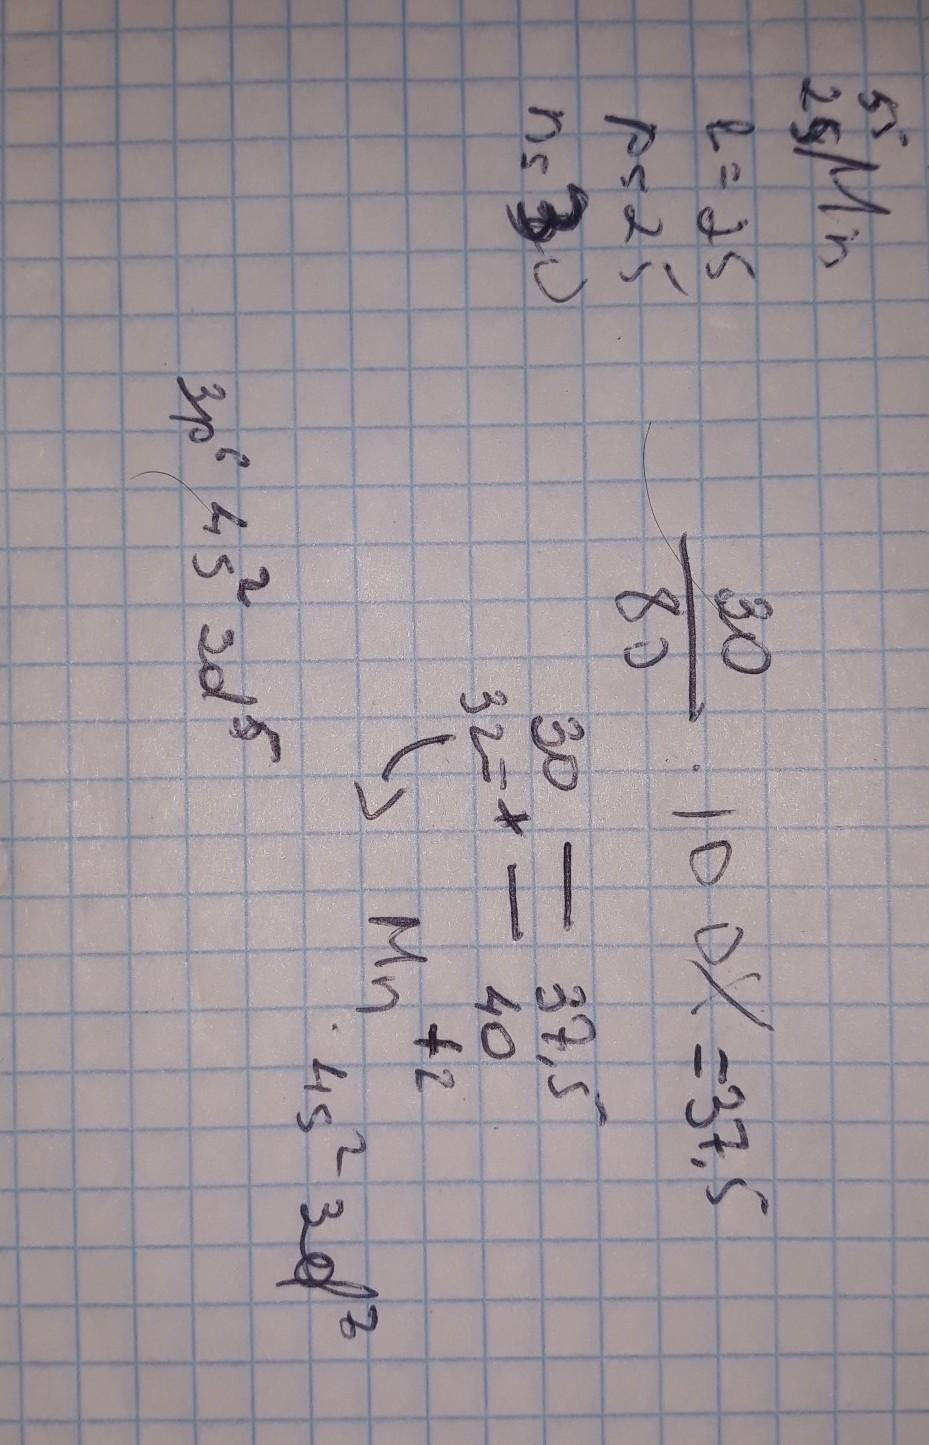 55
25 Mn
e = 25
p = 25
n = 30
30
80 · 100% = 37,5
30 — 37,5
32 = x — 40
Mn +2 4s² 3d⁷
3p⁶ 4s² 3d⁵